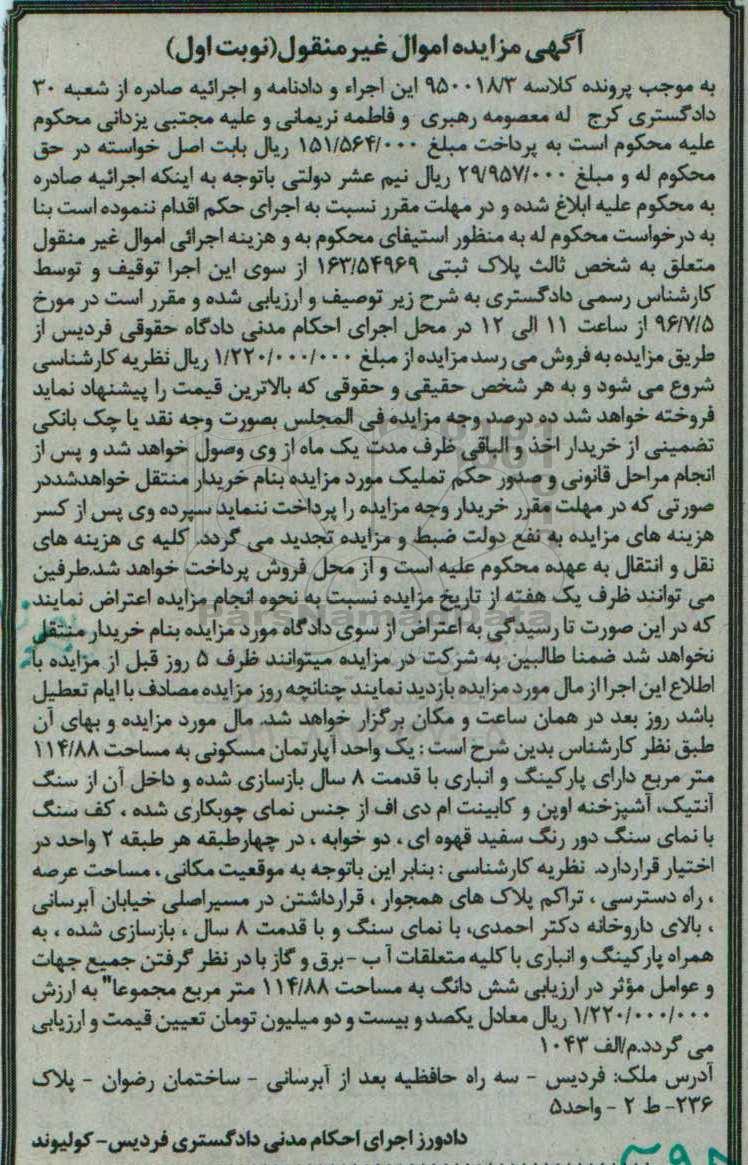 آگهی مزایده اموال غیر منقول(نوبت اول)
به موجب پرونده کلاسه ۹۵۰۰۱۸/۳ این اجراء و دادنامه و اجرائیه صادره از شعبه ۳۰
دادگستری کرج له معصومه رهبری و فاطمه نریمانی و علیه مجتبی یزدانی محکوم
علیه محکوم است به پرداخت مبلغ ۱۵۱/۵۶۴/۰۰۰ ریال بابت اصل خواسته در حق
محکوم له و مبلغ ۲۹/۹۵۷/۰۰۰ ریال نیم عشر دولتی باتوجه به اینکه اجرائیه صادره
به محکوم علیه ابلاغ شده و در مهلت مقرر نسبت به اجرای حکم اقدام ننموده است بنا
به درخواست محکوم له به منظور استیفای محکوم به و هزینه اجرائی اموال غیر منقول
متعلق به شخص ثالث پلاک ثبتی ۱۶۳/۵۴۹۶۹ از سوی این اجرا توقیف و توسط
کارشناس رسمی دادگستری به شرح زیر توصیف و ارزیابی شده و مقرر است در مورخ
۹۶/۷/۵ از ساعت ۱۱ الی ۱۲ در محل اجرای احکام مدنی دادگاه حقوقی فردیس از
طریق مزایده به فروش می رسد مزایده از مبلغ ۱/۲۲۰/۰۰۰/۰۰۰ ریال نظریه کارشناسی
شروع می شود و به هر شخص حقیقی و حقوقی که بالاترین قیمت را پیشنهاد نماید
فروخته خواهد شد ده درصد وجه مزایده فی المجلس بصورت وجه نقد یا چک بانکی
تضمینی از خریدار اخذ و الباقی ظرف مدت یک ماه از وی وصول خواهد شد و پس از
انجام مراحل قانونی و صدور حکم تملیک مورد مزایده بنام خریدار منتقل خواهدشددر
صورتی که در مهلت مقرر خریدار وجه مزایده را پرداخت ننماید سپرده وی پس از کسر
هزینه های مزایده به نفع دولت ضبط و مزایده تجدید می گردد. کلیه ی هزینه های
نقل و انتقال به عهده محکوم علیه است و از محل فروش پرداخت خواهد شد.طرفین
می توانند ظرف یک هفته از تاریخ مزایده نسبت به نحوه انجام مزایده اعتراض نمایند
که در این صورت تا رسیدگی به اعتراض از سوی دادگاه مورد مزایده بنام خریدار منتقل
نخواهد شد ضمنا طالبین به شرکت در مزایده میتوانند ظرف ۵ روز قبل از مزایده با
اطلاع این اجرا از مال مورد مزایده بازدید نمایند چنانچه روز مزایده مصادف با ایام تعطیل
باشد روز بعد در همان ساعت و مکان برگزار خواهد شد. مال مورد مزایده و بهای آن
طبق نظر کارشناس بدین شرح است : یک واحد آپارتمان مسکونی به مساحت ۱۱۴/۸۸
متر مربع دارای پارکینگ و انباری با قدمت ۸ سال بازسازی شده و داخل آن از سنگ
آنتیک، آشپزخانه اوپن و کابینت ام دی اف از جنس نمای چوبکاری شده ، کف سنگ
با نمای سنگ دور رنگ سفید قهوه ای ، دو خوابه ، در چهارطبقه هر طبقه ۲ واحد در
اختیار قراردارد. نظریه کارشناسی : بنابر این باتوجه به موقعیت مکانی ، مساحت عرصه
، راه دسترسی ، تراکم پلاک های همجوار ، قرارداشتن در مسیراصلی خیابان آبرسانی
، بالای داروخانه دکتر احمدی، با نمای سنگ و با قدمت ۸ سال ، بازسازی شده ، به
همراه پارکینگ و انباری با کلیه متعلقات آ ب -برق و گاز با در نظر گرفتن جمیع جهات
و عوامل مؤثر در ارزیابی شش دانگ به مساحت ۱۱۴/۸۸ متر مربع مجموعا" به ارزش
۱/۲۲۰/۰۰۰/۰۰۰ ریال معادل یکصد و بیست و دو میلیون تومان تعیین قیمت و ارزیابی
می گردد.م/الف ۱۰۴۳
آدرس ملک: فردیس - سه راه حافظیه بعد از آبرسانی - ساختمان رضوان - پلاک
۲۳۶- ط ۲ - واحد۵
دادورز اجرای احکام مدنی دادگستری فردیس- کولیوند